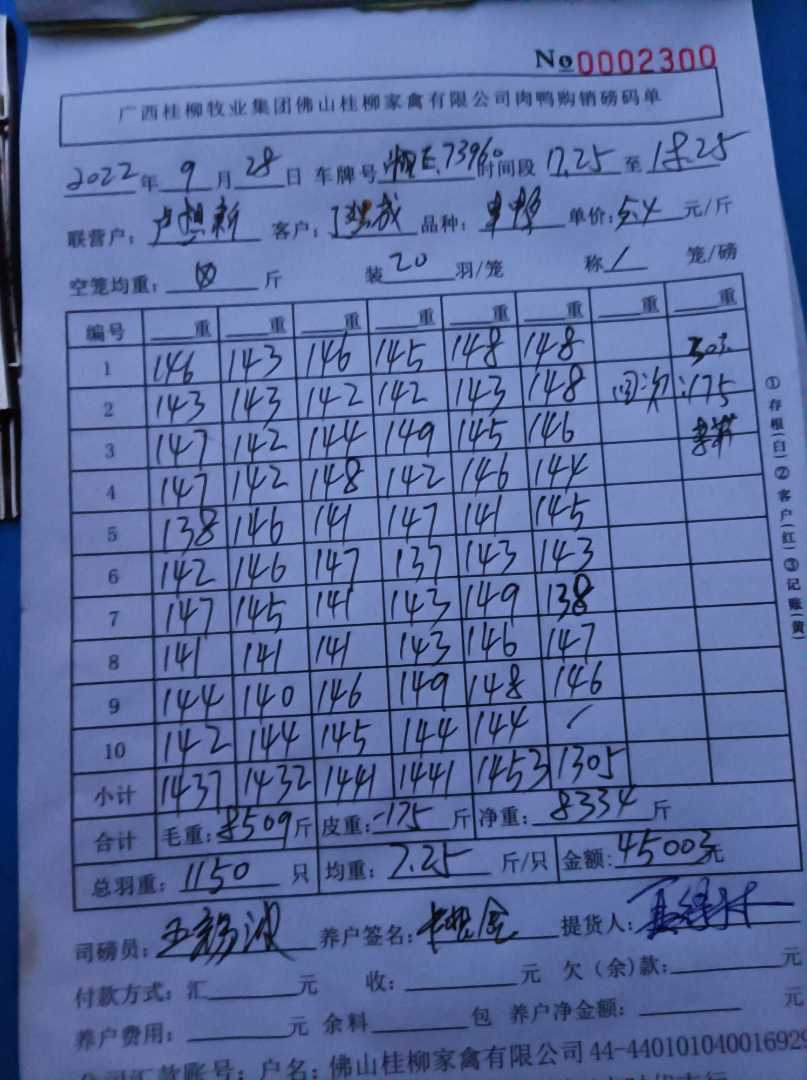 No 0002300
广西桂柳牧业集团佛山桂柳家禽有限公司肉鸭购销磅码单
2022 年 9 月 28 日 车牌号 E.73960 时间段 17.25 至 18.25
联营户: 卢想新 客户: 品种: 单价: 5.4 元/斤
空笼均重: 斤 装 20 羽/笼 称 1 笼/磅
编号 重 重 重 重 重 重 重 重
1 146 143 146 145 148 148
2 143 143 142 142 143 148 :175
3 147 142 144 149 145 146
4 147 142 148 142 146 144
5 138 146 141 147 141 145
6 142 146 147 137 143 143
7 147 145 141 143 149 138
8 141 141 141 143 146 147
9 144 140 146 149 148 146
10 142 144 145 144 144 /
小计 1437 1432 1441 1441 1453 1305
合计 毛重: 8509 斤 皮重: -175 斤 净重: 8334 斤
总羽重: 1150 只 均重: 7.25 斤/只 金额: 45003 元
司磅员: 养户签名: 提货人:
付款方式: 汇 元 收: 元 欠(余)款: 元
养户费用: 元 余料 包 养户净金额: 元
公司汇款账号: 户名: 佛山桂柳家禽有限公司 44-440101040016929
①存根(白)②客户(红)③记账(黄)